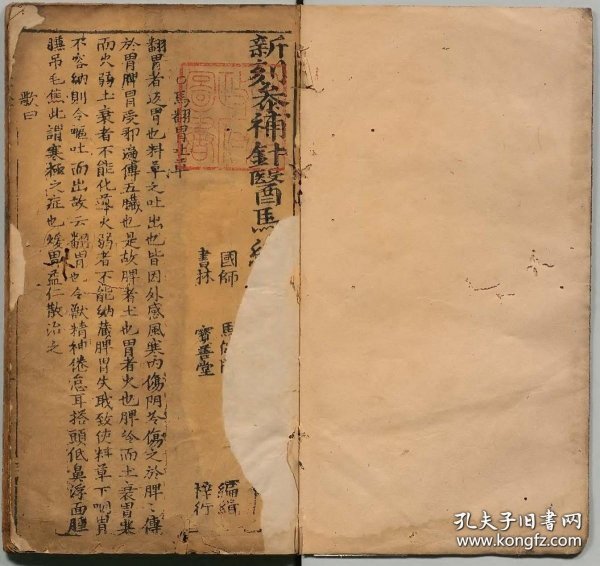 新刻參補針醫馬經
國師 馬 編緝
書林 寶善堂 梓行
○馬翻胃吐草
翻胃者返胃也料草之吐出也皆因外感風寒內傷陰冷傷之於脾〻傳
於胃脾胃受邪遍傳五臟也是故脾者土也胃者火也脾冷而土衰胃寒
而火弱土衰者不能化導火弱者不能納藏脾胃失職致使料草下咽胃
不容納則令嘔吐而出故云翻胃也令獸精神倦怠耳搭頭低鼻浮面腫
臁吊毛焦此謂寒極之症也煖胃益仁散治之
歌曰
孔夫子旧書网
www.kongfz.com